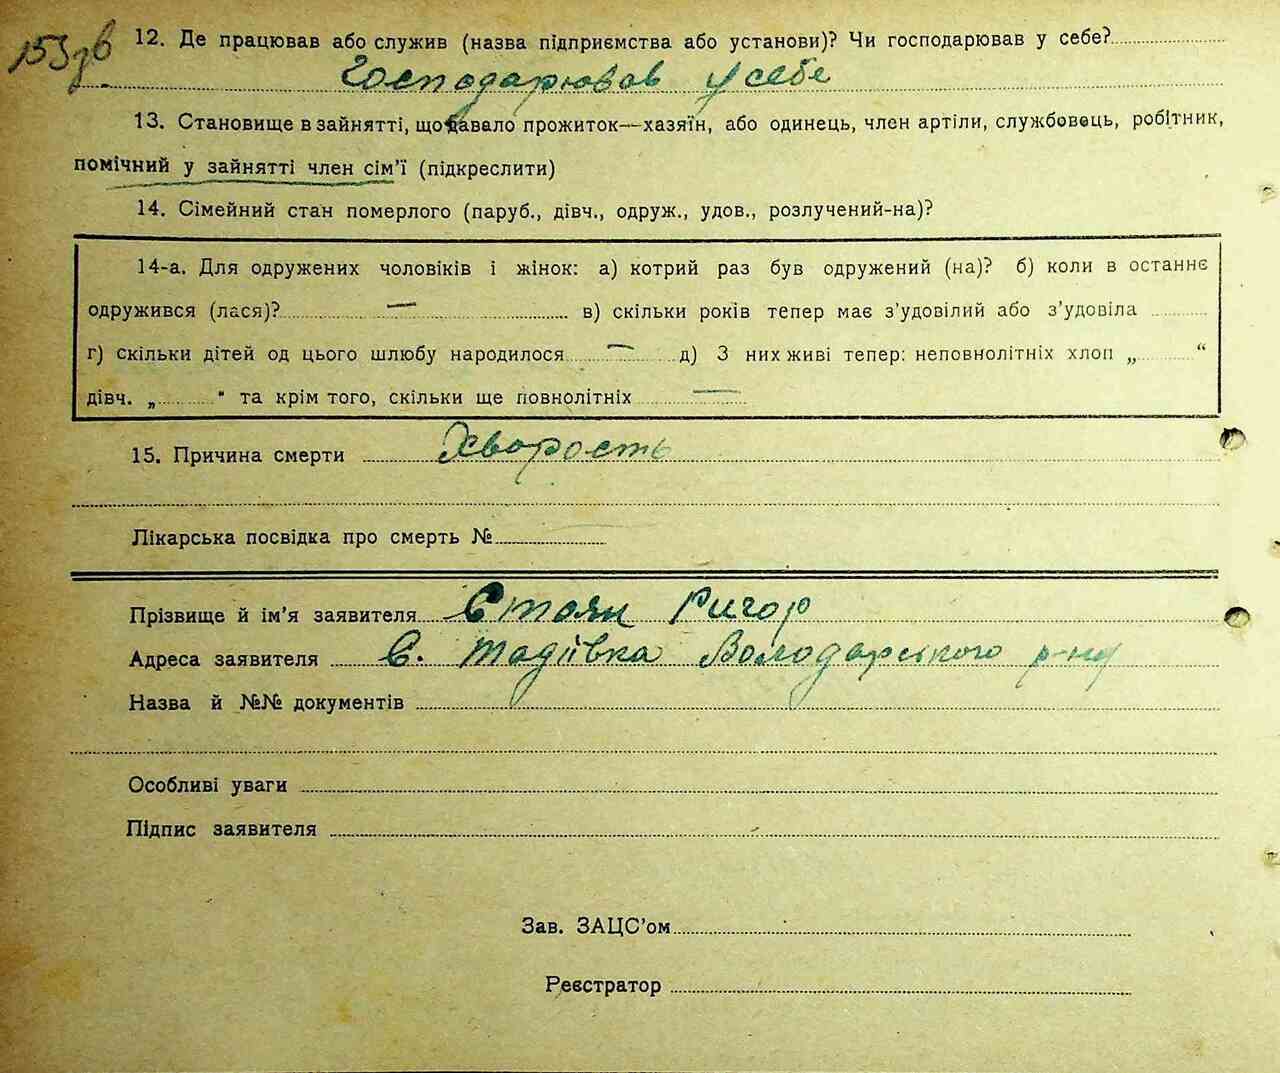 153зв
12. Де працював або служив (назва підприємства або установи)? Чи господарював у себе?
Господарював у себе
13. Становище в зайнятті, що давало прожиток—хазяїн, або одинець, член артіли, службовець, робітник,
помічний у зайнятті член сім'ї (підкреслити)
14. Сімейний стан померлого (паруб., дівч., одруж., удов., розлучений-на)?
14-а. Для одружених чоловіків і жінок: а) котрий раз був одружений (на)? б) коли в останнє
одружився (лася)? — в) скільки років тепер має з'удовілий або з'удовіла
г) скільки дітей од цього шлюбу народилося — д) З них живі тепер: неповнолітніх хлоп „ “
дівч. „ " та крім того, скільки ще повнолітніх —
15. Причина смерти Хворость
Лікарська посвідка про смерть №
Прізвище й ім'я заявителя Стоян Ригор
Адреса заявителя С. Тадіївка Володарського р-ну
Назва й №№ документів
Особливі уваги
Підпис заявителя
Зав. ЗАЦС'ом
Реєстратор